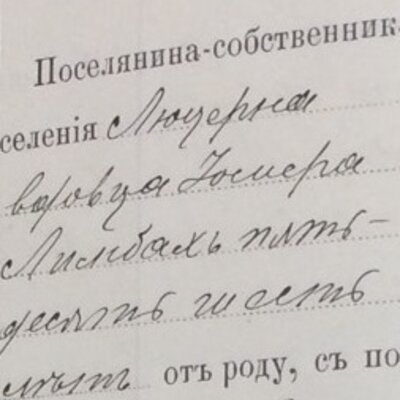 Поселянина-собственник
селенія Люцерна
вдовца Іосифа
Лимбахъ пять-
десятъ шесть
лѣтъ отъ роду, съ по